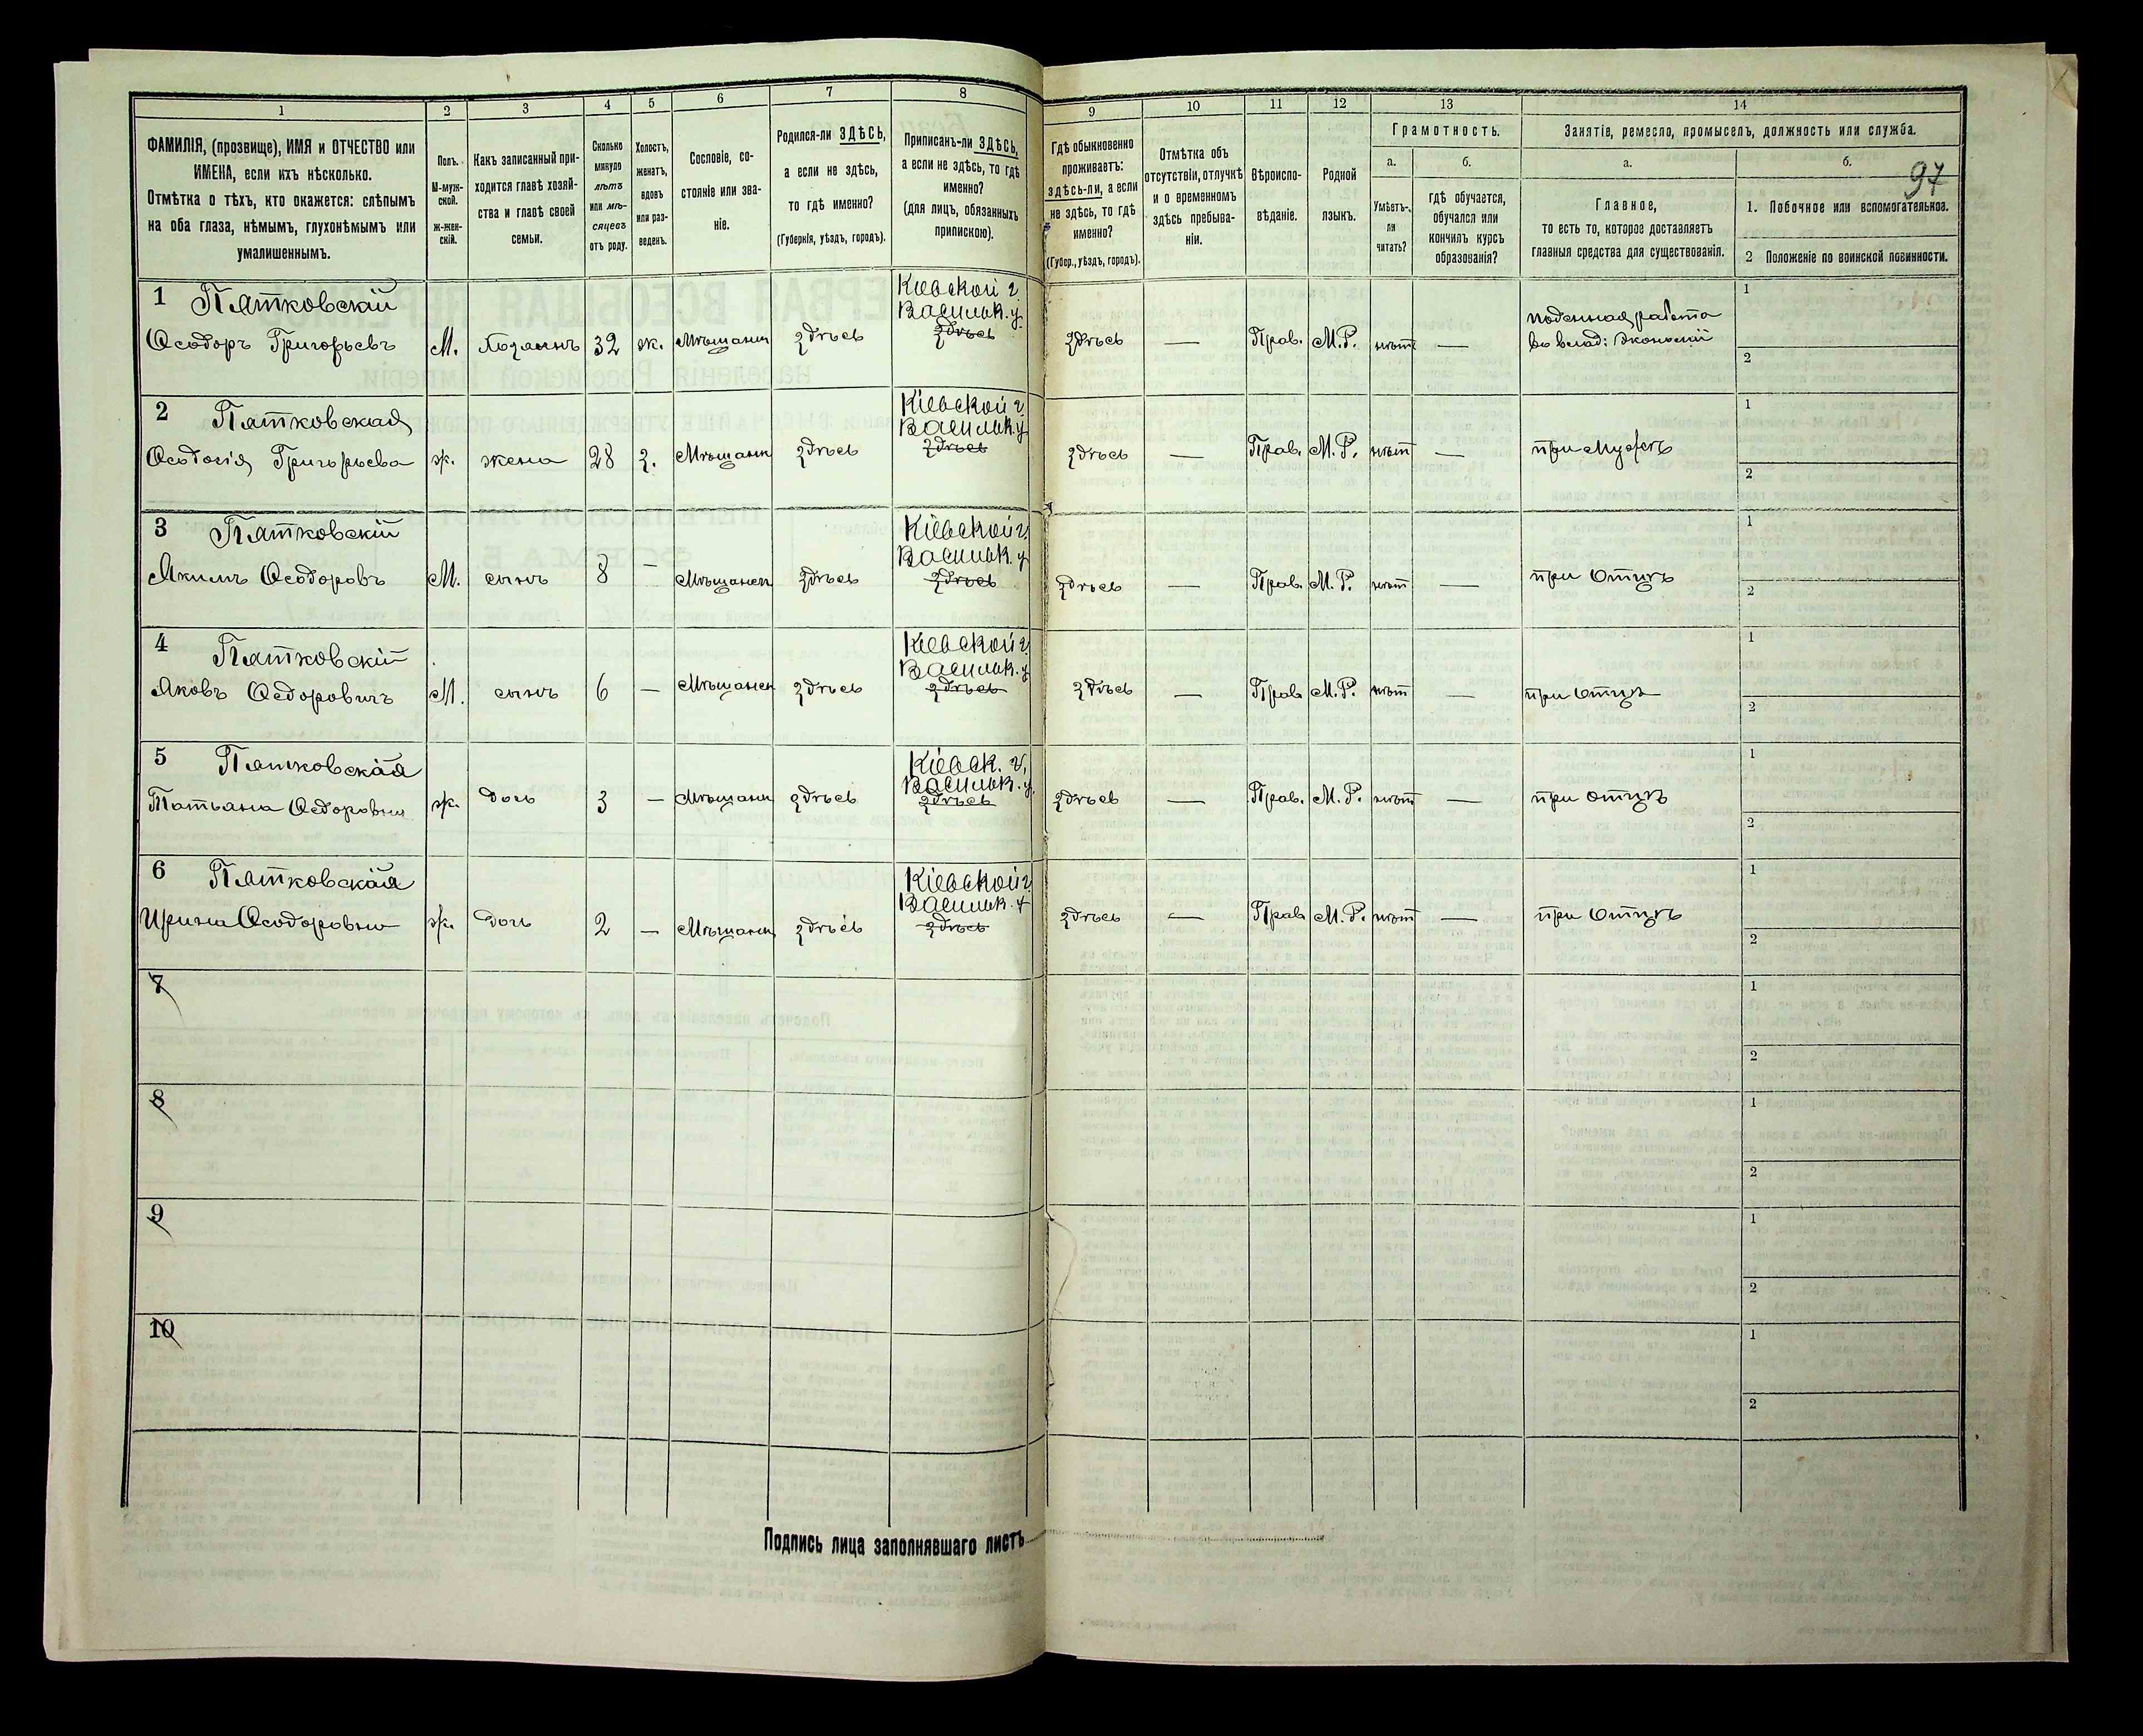 1 2 3 4 5 6 7 8 9 10 11 12 13 14
ФАМИЛІЯ, (прозвище), ИМЯ и ОТЧЕСТВО или
ИМЕНА, если ихъ нѣсколько.
Отмѣтка о тѣхъ, кто окажется: слѣпымъ
на оба глаза, нѣмымъ, глухонѣмымъ или
умалишеннымъ.
Полъ.
М-муж-
ской.
Ж-жен-
скій.
Какъ записанный при-
ходится главѣ хозяй-
ства и главѣ своей
семьи.
Сколько
минуло
лѣтъ
или мѣ-
сяцевъ
отъ роду.
Холостъ,
женатъ,
вдовъ
или раз-
веденъ.
Сословіе, со-
стояніе или зва-
ніе.
Родился-ли ЗДѢСЬ,
а если не здѣсь,
то гдѣ именно?
(Губернія, уѣздъ, городъ).
Приписанъ-ли ЗДѢСЬ,
а если не здѣсь, то гдѣ
именно?
(для лицъ, обязанныхъ
припискою).
Гдѣ обыкновенно
проживаетъ:
здѣсь-ли, а если
не здѣсь, то гдѣ
именно?
(Губер., уѣздъ, городъ).
Отмѣтка объ
отсутствіи, отлучкѣ
и о временномъ
здѣсь пребыва-
ніи.
Вѣроиспо-
вѣданіе.
Родной
языкъ.
Грамотность.
а.
Умѣетъ-
ли
читать?
б.
гдѣ обучается,
обучался или
кончилъ курсъ
образованія?
Занятіе, ремесло, промыселъ, должность или служба.
а.
Главное,
то есть то, которое доставляетъ
главныя средства для существованія.
б.
97
1. Побочное или вспомогательное.
2 Положеніе по воинской повинности.
1 Пятковскій
Ѳеодоръ Григорьевъ М. Хозяинъ 32 ж. Мѣщанин здѣсь
Кіевской г.
Васильк. у.
здѣсь
здѣсь — Прав. М.Р. нѣт —
поденная работа
во влад: Экономіи
1
2
2 Пятковская
Ѳеодосія Григорьева ж. жена 28 з. Мѣщанк здѣсь
Кіевской г.
Васильк. у
здѣсь
здѣсь — Прав. М.Р. нѣт — при мужѣ
1
2
3 Пятковскій
Якимъ Ѳеодоровъ М. сынъ 8 — Мѣщанен здѣсь
Кіевской г.
Васильк. у
здѣсь
здѣсь — Прав. М.Р. нѣт — при отцѣ
1
2
4 Пятковскій
Яковъ Ѳедоровичъ М. сынъ 6 — Мѣщанен здѣсь
Кіевской г.
Васильк. у
здѣсь
здѣсь — Прав. М.Р. нѣт — при отцѣ
1
2
5 Пятковская
Татьяна Ѳедоровна ж. дочь 3 — Мѣщанк здѣсь
Кіевск. г.
Васильк. у.
здѣсь
здѣсь — Прав. М.Р. нѣт — при отцѣ
1
2
6 Пятковская
Ирина Ѳеодоровна ж. дочь 2 — Мѣщанк здѣсь
Кіевской г.
Васильк. у
здѣсь
здѣсь — Прав. М.Р. нѣт — при отцѣ
1
2
7
1
2
8
1
2
9
1
2
10
1
2
Подпись лица заполнявшаго листъ